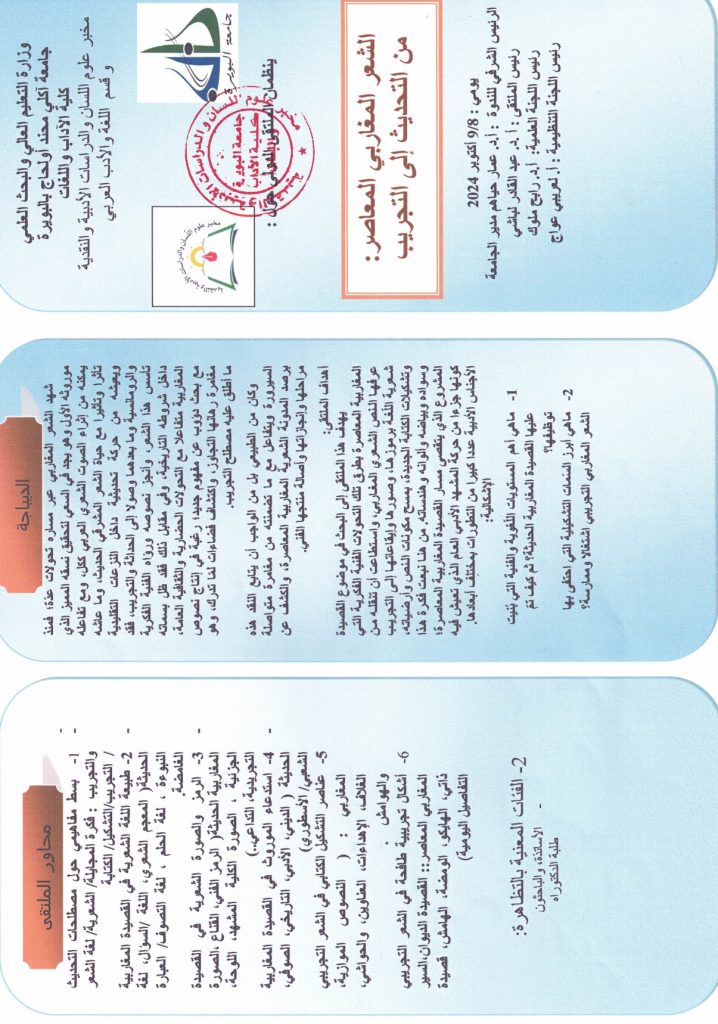 وزارة التعليم العالي والبحث العلمي
جامعة آكلي محند اولحاج بالبويرة
كلية الآداب واللغات
مخبر علوم اللسان والدراسات الأدبية والنقدية
و قسم اللغة والأدب العربي
جامعة البويرة
ينظمان الملتقى الدولي حول :
الشعر المغاربي المعاصر:
من التحديث إلى التجريب
يومي : 9/8 أكتوبر 2024
الرئيس الشرفي للندوة : أ.د. عمار حياهم مدير الجامعة
رئيس الملتقى : أ. د. عبد القادر لباشي
رئيس اللجنة العلمية: أ.د. رابح ملوك
رئيس اللجنة التنظيمية : أ. لعريبي عواج
الديباجة
شهد الشعر المغاربي عبر مساره تحولات عدة؛ فمنذ
موروثه الأول وهو يجد في السعي لتحقيق نسقه المميز الذي
يمكنه من إثراء الصوت الشعري العربي ككل، ومع تفاعله
تأثرا وتأثيرا مع حياة الشعر المشرقي الحديث، وما عاشه
ويعيشه من حركة تحديثية داخل النزعات التقليدية
والرومانسية وما بعدهما وصولا إلى الحداثة والتجريب، فقد
تأسس هذا الشعر، وأنجز نصوصه ورؤاه الفنية الفكرية
داخل شروطه التاريخية، وفي مقابل ذلك فقد ظل بسماته
المغاربية متفاعلا مع التحولات الحضارية والثقافية العامة،
مع بحث دؤوب عن مفهوم جديد؛ رغبة في إنتاج نصوص
مغامرة رهانها التجاوز، واكتشاف فضاءات لما تدرك، وهو
ما أطلق عليه مصطلح التجريب.
وكان من الطبيعي بل من الواجب أن يتابع النقد هذه
السيرورة ويتفاعل مع ما تضمنته من مغامرة متواصلة
برصد المدونة الشعرية المغاربية المعاصرة، والكشف عن
مراحلها وإنجازاتها وأصالة منتجها الفني.
أهداف الملتقى:
يهدف هذا الملتقى إلى البحث في موضوع القصيدة
المغاربية المعاصرة بطرق تلك التحولات الفنية الفكرية التي
عرفها النص الشعري المغاربي، واستطاعت أن تنقله من
شعرية اللغة برموزها، وصورها وإيقاعاتها إلى التجريب
وتشكيلات الكتابة الجديدة، بمسح مكونات النص وأرضياته،
وسواده وبياضه وألوانه وهندساته. من هنا نبعت فكرة هذا
المشروع الذي يتقصى مسار القصيدة المغاربية المعاصرة؛
كونها جزءا من حركة المشهد الأدبي العام الذي تعيش فيه
الأجناس الأدبية عددا كبيرا من التطورات بمختلف أبعادها.
الإشكالية:
1- ماهي أهم المستويات اللغوية والفنية التي بنيت
عليها القصيدة المغاربية الحديثة؟ ثم كيف تم
توظيفها؟
2- ماهي أبرز السمات التشكيلية التي احتفى بها
الشعر المغاربي التجريبي اشتغالا وممارسة؟
محاور الملتقى
1- بسط مفاهيمي حول مصطلحات التحديث
والتجريب : فكرة المجايلة/ الشعرية/ لغة الشعر
/ التجريب/التشكيل/ الكتابة
2- طبيعة اللغة الشعرية في القصيدة المغاربية
الحديثة( المعجم الشعري، اللغة /السؤال، لغة
النبوءة ، لغة الحلم ، لغة التصوف/ العبارة
الغامضة.
3- الرمز والصورة الشعرية في القصيدة
المغاربية الحديثة( الرمز الفني، القناع ،الصورة
الجزئية ، الصورة الكلية المشهد، اللوحة،
التجريدية، التداعي..)
4- استدعاء الموروث في القصيدة المغاربية
الحديثة ( الديني، الأدبي، التاريخي، الصوفي،
الشعبي/ الأسطوري)
5- عناصر التشكيل الكتابي في الشعر التجريبي
المغاربي : ( النصوص الموازية،
الغلاف، الإهداءات، العناوين، والحواشي،
والهوامش .
6- أشكال تجريبية طافحة في الشعر التجريبي
المغاربي المعاصر:: القصيدة الديوان،السير
ذاتي، الهايكو، الومضة، الهامش، قصيدة
التفاصيل اليومية)
2- الفئات المعنية بالتظاهرة:
- الأساتذة، والباحثون
طلبة الدكتوراه